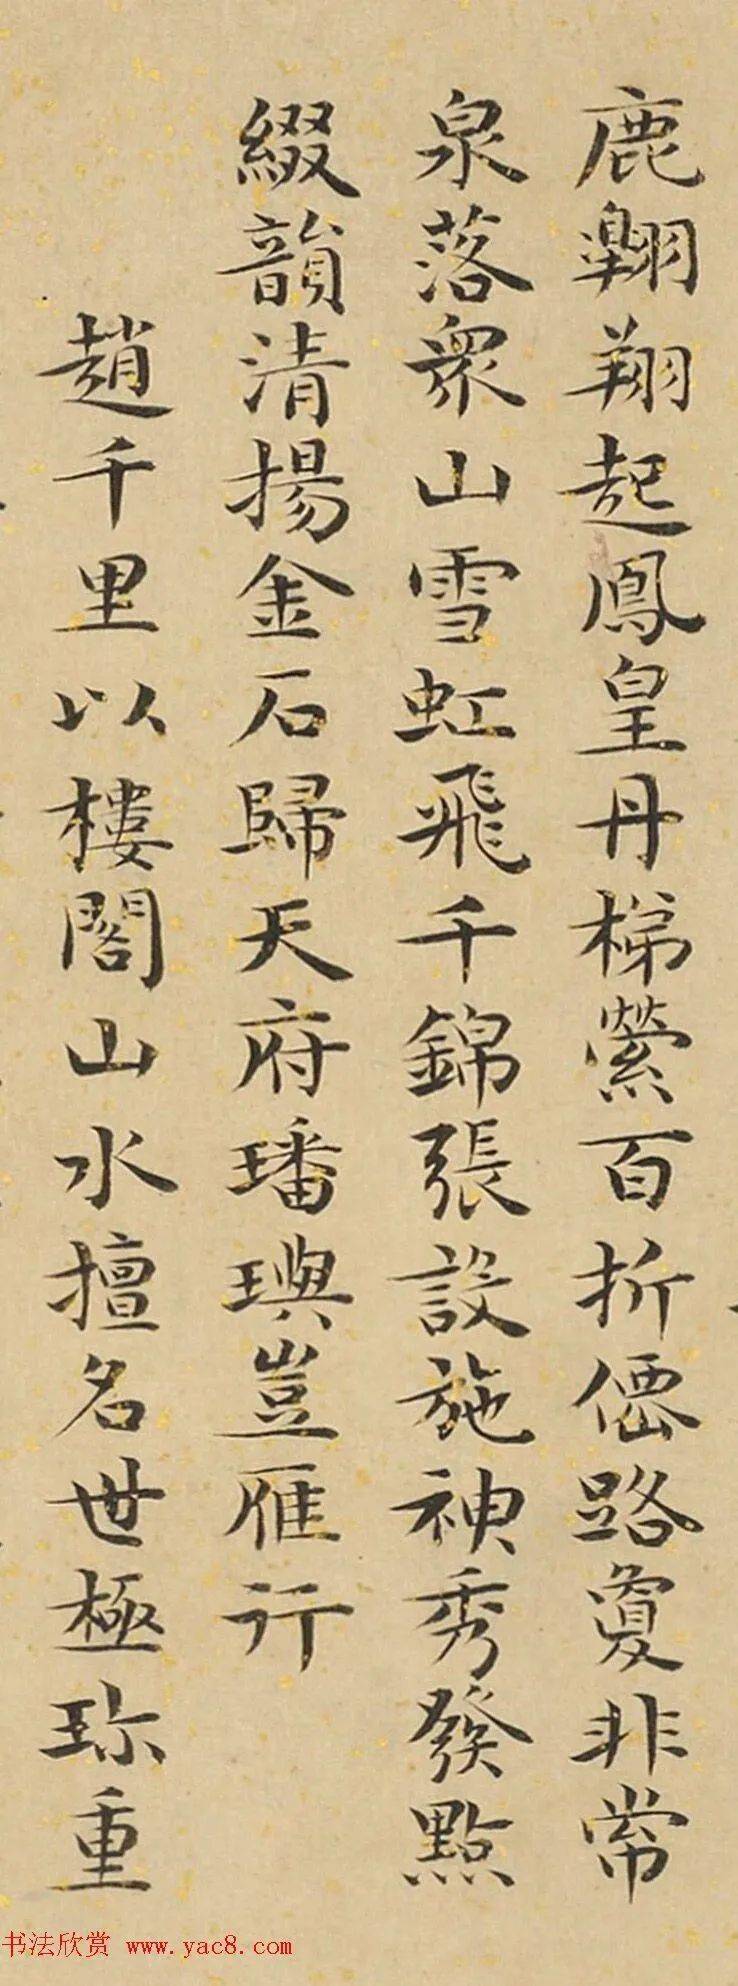 鹿翱翔起鳳皇丹梯縈百折僊路夐非常
泉落衆山雪虹飛千錦張設施神秀發點
綴韻清揚金石歸天府璠璵豈雁行
趙千里以樓閣山水擅名世極珎重
书法欣赏 www.yac8.com